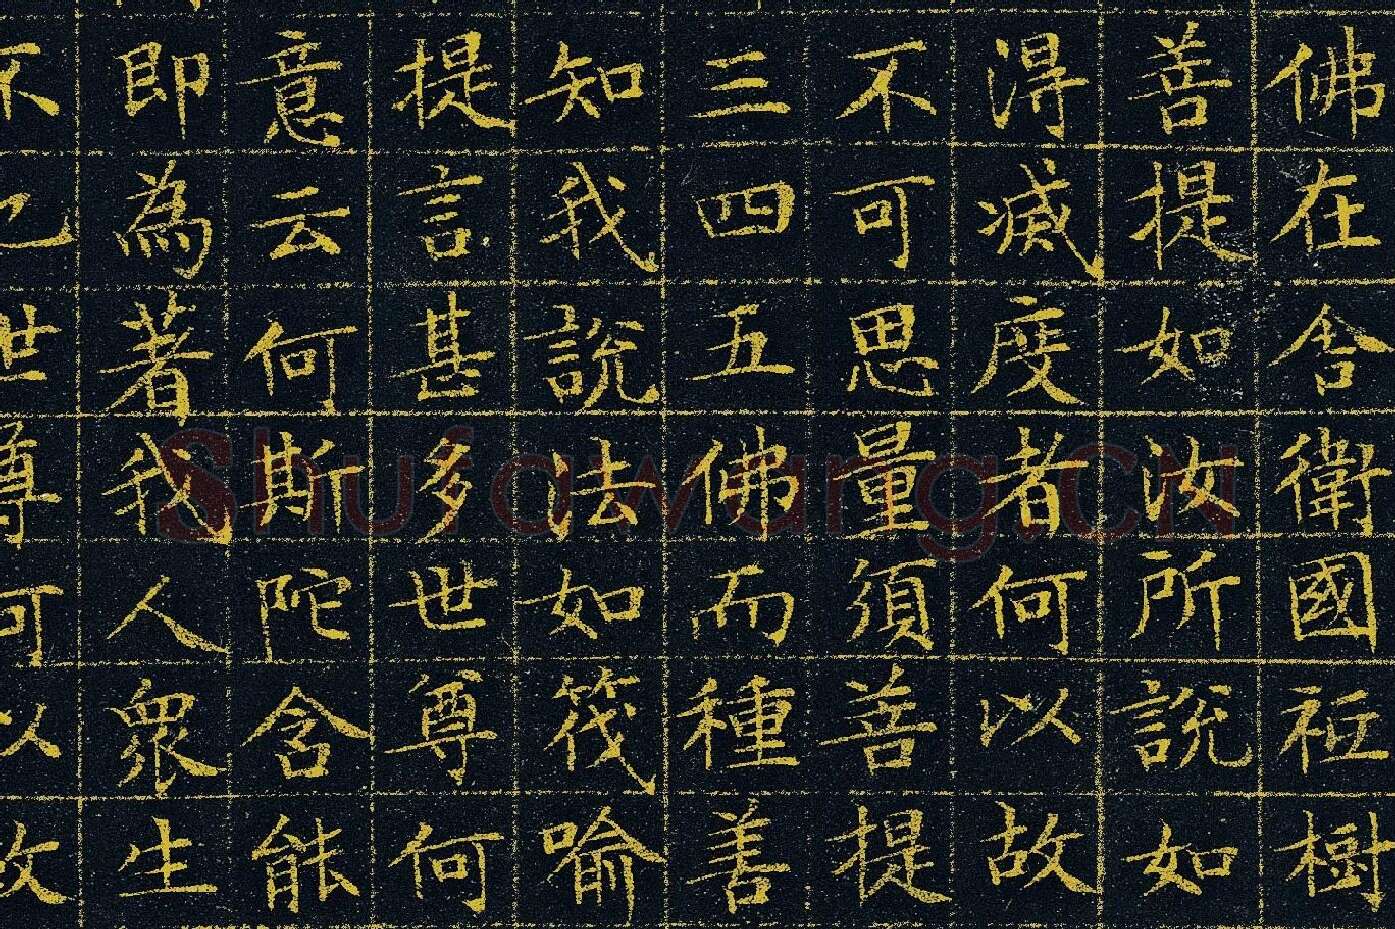 佛在舍衛國祇樹
善提如汝所說如
得滅度者何以故
不可思量須善提
三四五佛而種善
知我說法如筏喻
提言甚多世尊何
意云何斯陀含能
即為著我人眾生
不已世尊何以故
Shufawang.CN